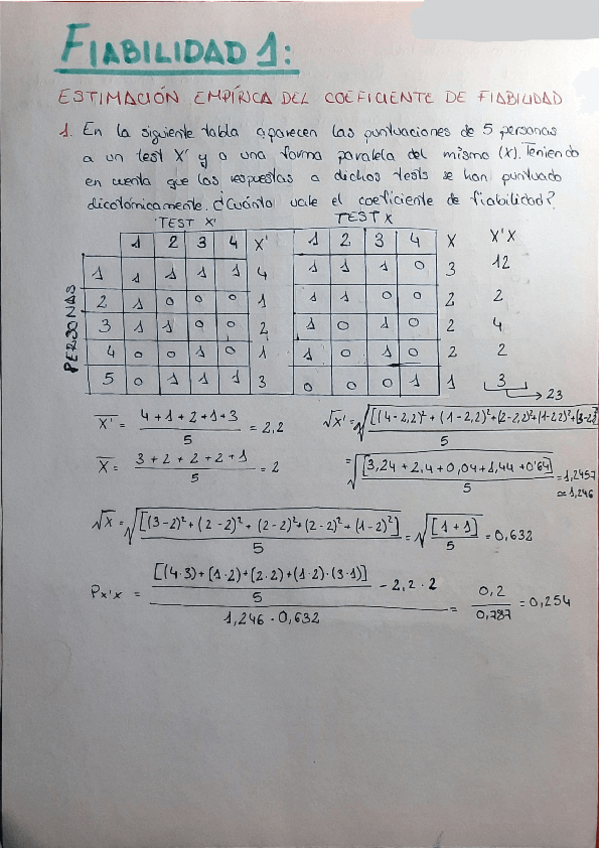 FIABILIDAD 1:
ESTIMACIÓN EMPÍRICA DEL COEFICIENTE DE FIABILIDAD
1. En la siguiente tabla aparecen las puntuaciones de 5 personas
a un test X' y a una forma paralela del mismo (X). Teniendo
en cuenta que las respuestas a dichos tests se han puntuado
dicotómicamente. ¿Cuánto vale el coeficiente de fiabilidad?
TEST X' TEST X
1 2 3 4 X' 1 2 3 4 X X'X
PERSONAS
1 1 1 1 1 4 1 1 1 0 3 12
2 1 0 0 0 1 1 1 0 0 2 2
3 1 1 0 0 2 1 0 1 0 2 4
4 0 0 1 0 1 1 0 1 0 2 2
5 0 1 1 1 3 0 0 0 1 1 3
→ 23
X̄' = (4+1+2+1+3)/5 = 2,2 √X' = √([(4-2,2)² + (1-2,2)² + (2-2,2)² + (1-2,2)² + (3-2,2)²]/5)
X̄ = (3+2+2+2+1)/5 = 2 = √([3,24 + 2,4 + 0,04 + 1,44 + 0'64]/5) = 1,2457
≃ 1,246
√X = √([(3-2)² + (2-2)² + (2-2)² + (2-2)² + (1-2)²]/5) = √([1+1]/5) = 0,632
Px'x = ([(4·3)+(1·2)+(2·2)+(1·2)·(3·1)]/5 - 2,2·2)/(1,246·0,632) = 0,2/0,787 = 0,254